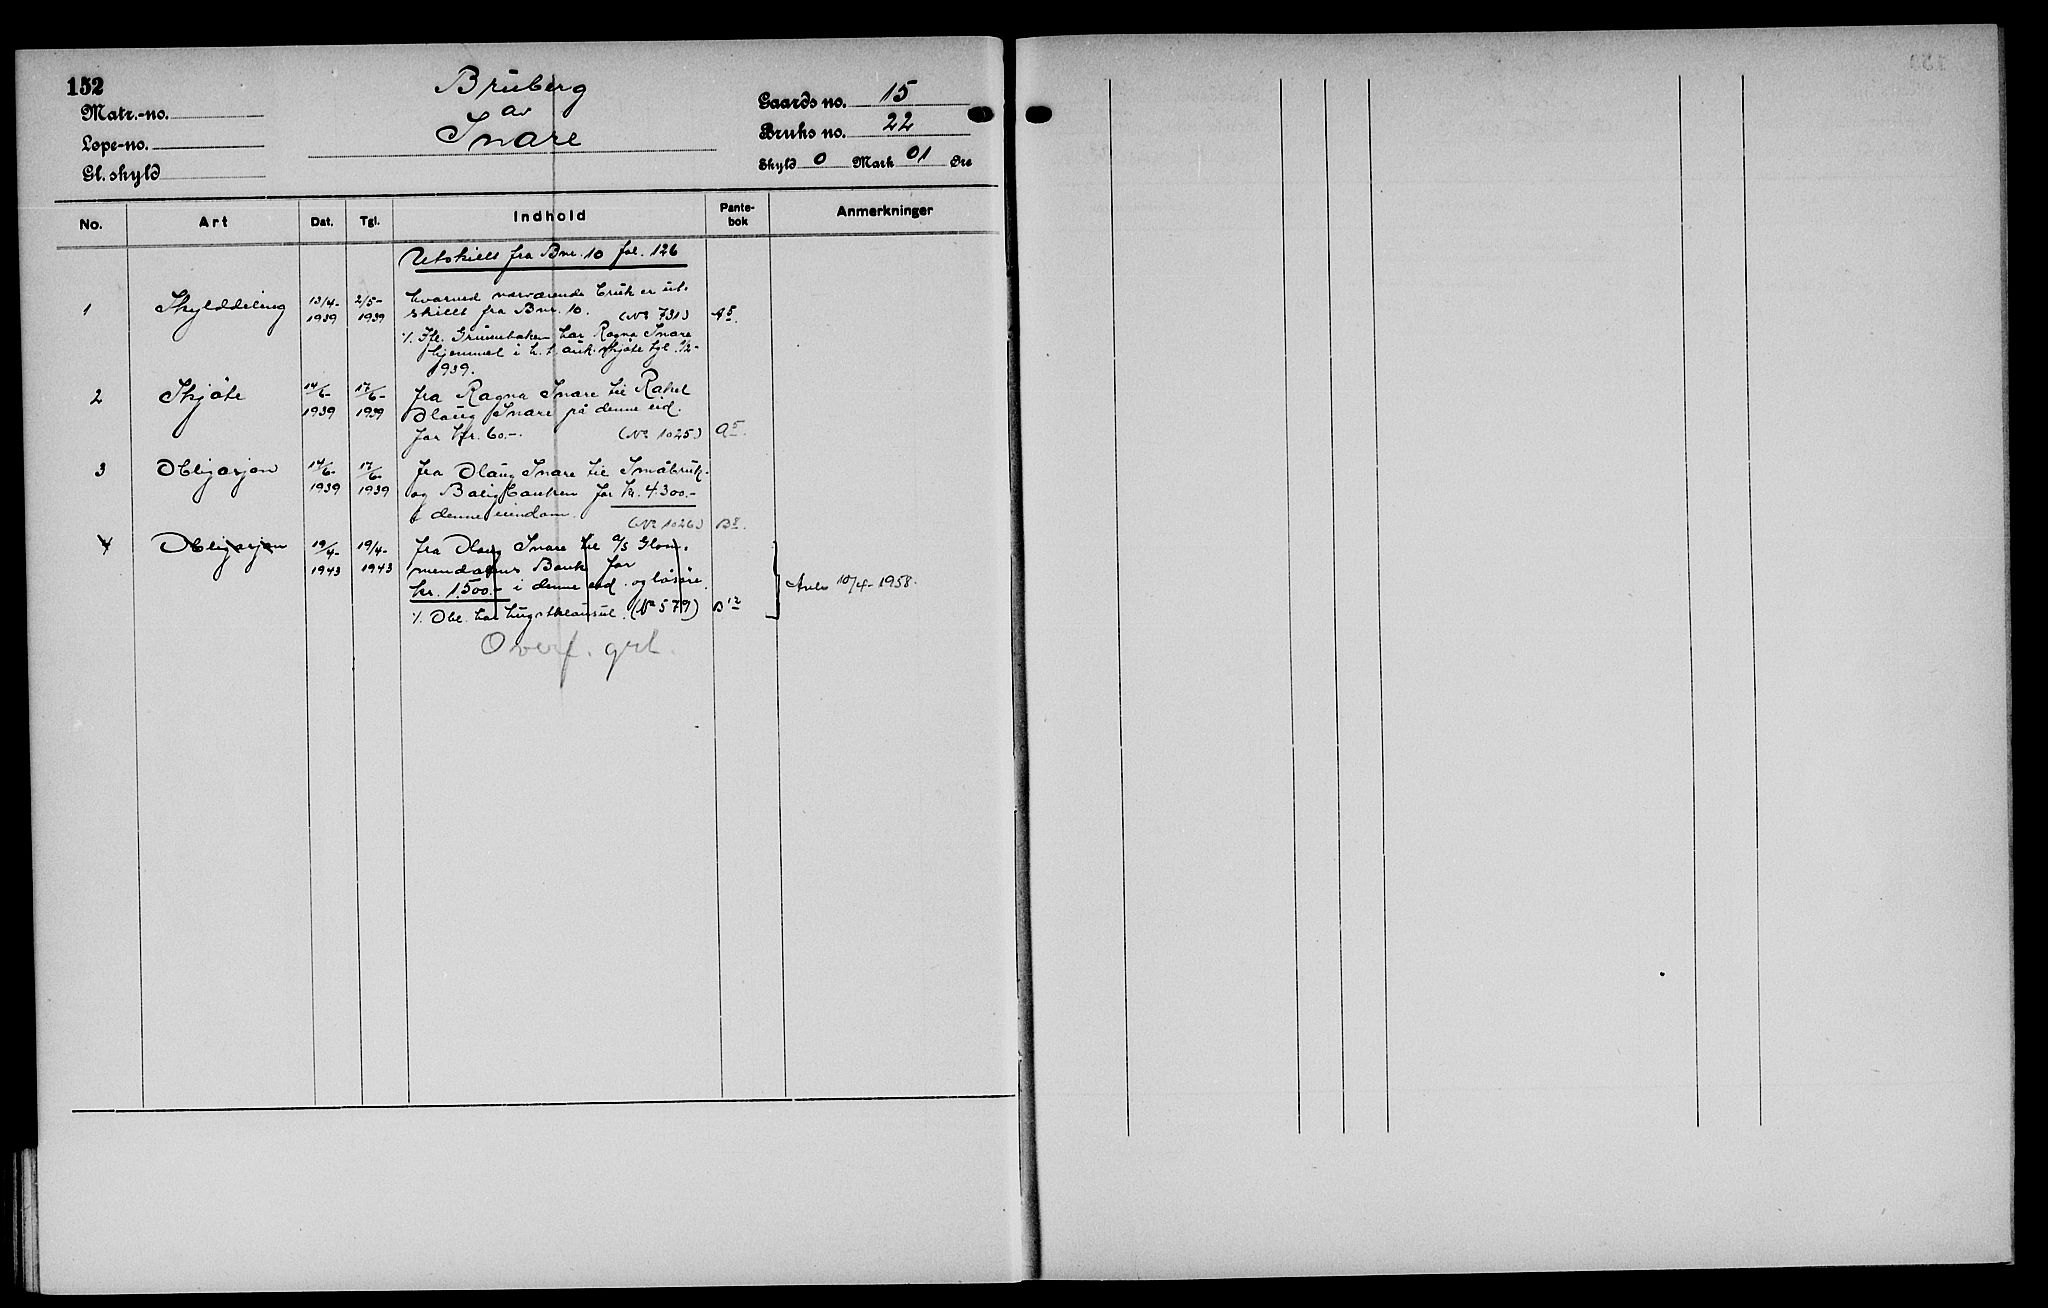 152
Brúberg
av
Snare
Matr.-no.
Løpe-no.
Gl. skyld
Gaards no. 15
Bruks no. 22
Skyld 0 Mark 01 Øre
No. Art Dat. Tgl. Indhold Pante-bok Anmerkninger
Utskilt fra Bnr. 10 fol. 126
1 Skylddeling 13/4-1939 2/5-1939 hvorved nærværende bruk er ut-
skilt fra Bnr. 10. (No 731) A5.
./. Ifl. Grunnboken har Ragna Snare
hjemmel i h. t. auk. skjøte tgl. 1/2-
1939.
2 Skjøte 14/6-1939 17/6-1939 fra Ragna Snare til Rakel
Olaug Snare på denne eid.
for kr. 60.-. (No 1025) A5.
3 Obligasjon 14/6-1939 17/6-1939 fra Olaug Snare til Småbruk-
og Boligbanken for kr. 4300.-
i denne eiendom. (No 1026) B8.
4 Obligasjon 19/4-1943 19/4-1943 fra Olaug Snare til A/S Glom-
mendalens Bank for
kr. 1500.- i denne eid. og løsøre.
./. Obl. har hugstklausul. (No 579) B12
Avl. 10/4-1958.
Overf. grl.